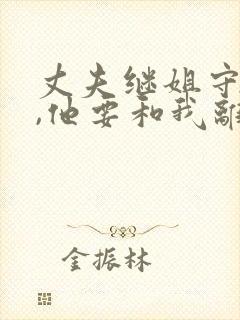 丈夫继姐守
,他要和我離
金振林